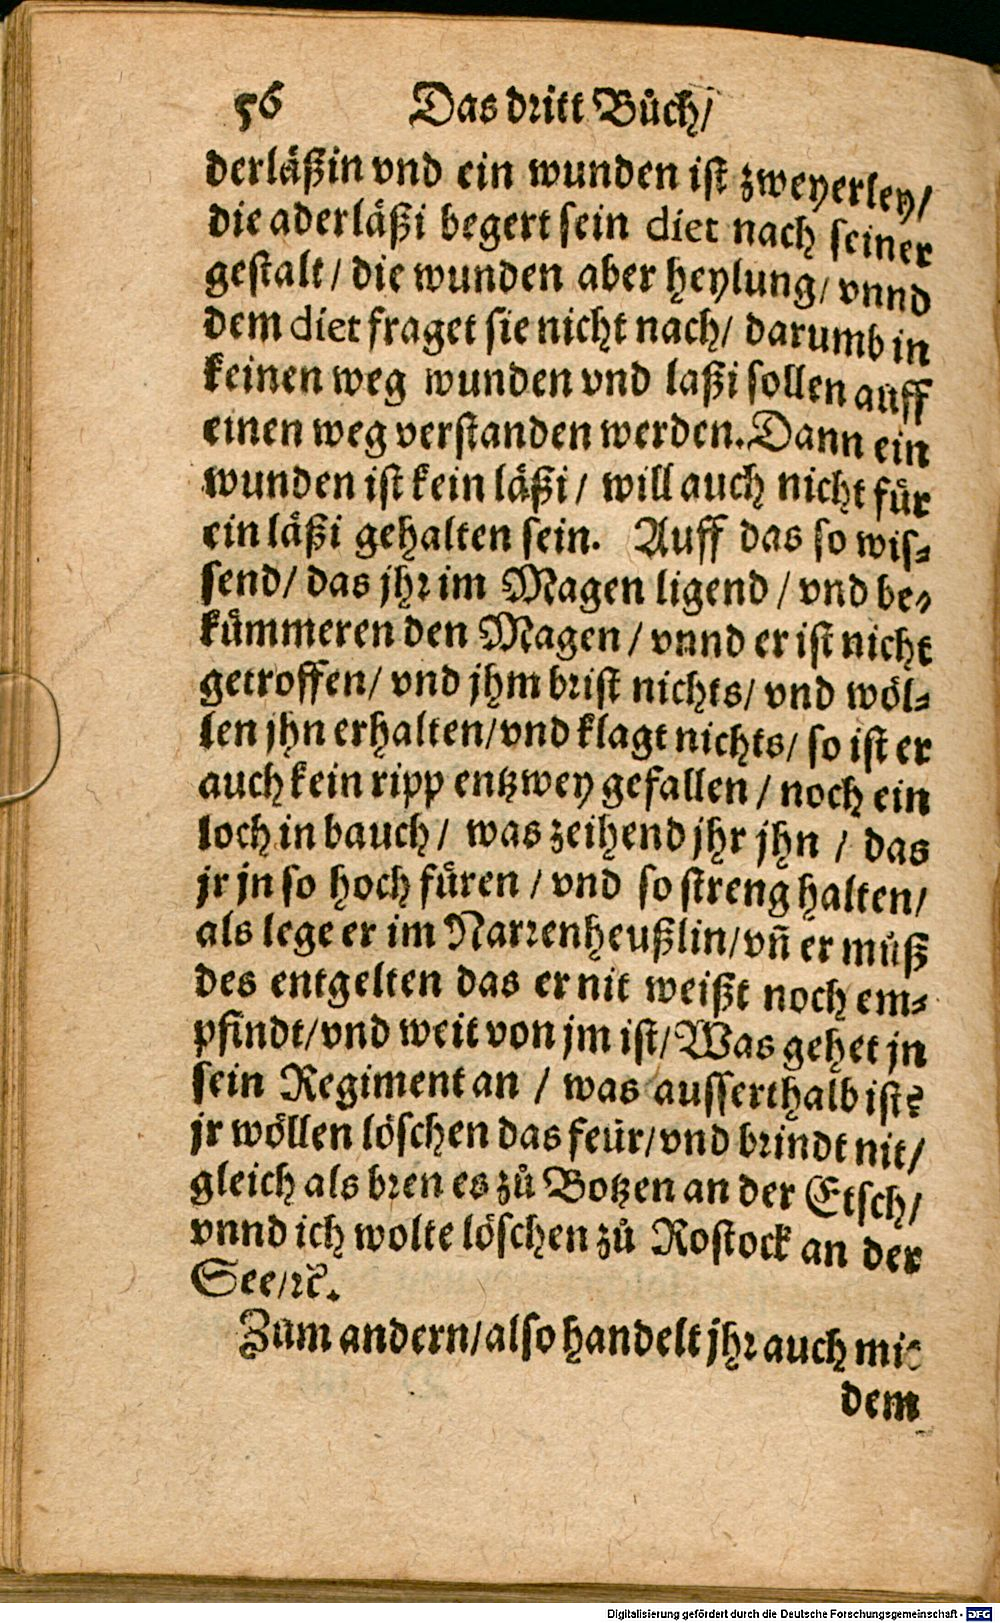 56 Das dritt Bůch/
derläßin vnd ein wunden ist zweyerley/
die aderläßi begert sein diet nach seiner
gestalt/ die wunden aber heylung/ vnnd
dem diet fraget sie nicht nach/ darumb in
keinen weg wunden vnd laßi sollen auff
einen weg verstanden werden. Dann ein
wunden ist kein läßi/ will auch nicht für
ein läßi gehalten sein. Auff das so wis⸗
send/ das jhr im Magen ligend/ vnd be⸗
kümmeren den Magen/ vnnd er ist nicht
getroffen/ vnd jhm brist nichts/ vnd wöl⸗
len jhn erhalten/ vnd klagt nichts/ so ist er
auch kein ripp entzwey gefallen/ noch ein
loch in bauch/ was zeihend jhr jhn/ das
jr jn so hoch füren/ vnd so streng halten/
als lege er im Narrenheußlin/ vñ er můß
des entgelten das er nit weißt noch em⸗
pfindt/ vnd weit von jm ist/ Was gehet jn
sein Regiment an/ was ausserthalb ist?
jr wöllen löschen das feür/ vnd brindt nit/
gleich als bren es zů Botzen an der Etsch/
vnnd ich wolte löschen zů Rostock an der
See/ ꝛc.
Zum andern/ also handelt jhr auch mit
dem
Digitalisierung gefördert durch die Deutsche Forschungsgemeinschaft - DFG